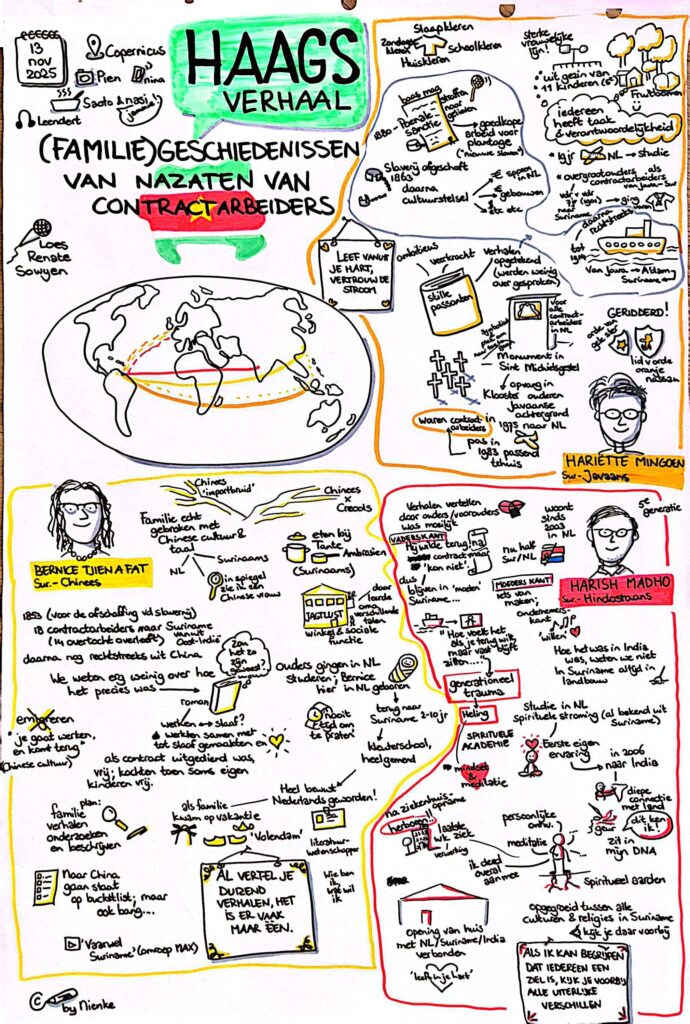 13
nov
2025
Copernicus
Pien
nina
Saoto & nasi
Leendert
HAAGS
VERHAAL
(FAMILIE)GESCHIEDENISSEN
VAN NAZATEN VAN
CONTRACTARBEIDERS
Loes
Renate
Sowyen
LEEF VANUIT
JE HART,
VERTROUW DE
STROOM
Zondagse
kleren
Slaapkleren
Schoolkleren
Huiskleren
sterke
vrouwelijke
lijn
uit gezin van
11 kinderen (5e)
Fruitbomen
iedereen
heeft taak
& verantwoordelijkheid
19jr NL → studie
overgrootouders als
contractarbeiders
van Java-Sur
7jr (igar)
naar
Suriname
→ ging
daarna
rechtstreeks
tot
1914
Van Java → Adam
Suriname
1880
baas mag
Poenale
Sanctie
straffen
naar
gelieven
→ goedkope
arbeid voor
plantage
("nieuwe slaven")
Slavernij afgeschaft
1863
daarna
cultuurstelsel
€ sppren
in NL
€ gebouwen
etc etc
ambitieus
verkracht
Verhalen
opgetekend
(werden weinig
over gesproken)
stille
passanten
voor
alle
contract-
arbeiders
in NL
Monument in
Sint Michielsgestel
→ opvang in
Klooster ouderen
Javaanse
achtergrond
waren contract-
arbeiders
in
1975 naar NL
pas in
1983 passend
tehuis
GERIDDERD!
orde van
gele ster
lid v orde
oranje
nassau
HARIËTTE MINGOEN
Sur - Javaans
BERNICE TJIEN A FAT
Sur. - Chinees
Chinees
'importbruid'
Chinees
x
Creools
Familie echt
gebroken met
Chinese cultuur &
taal
NL
Surinaams
in spiegel
zie ik een
Chinese vrouw
eten bij
Tante
(Surinaams)
Ambrosien
JAGTLUST
winkel & sociale
functie
door
leerde
oma
verschillende
talen
1853 (voor de afschaffing vd slavernij)
18 contractarbeiders naar Suriname
(14 overtocht overleeft)
vanuit
Oost-Indië
daarna nog rechtstreeks uit China
We weten erg weinig over hoe
het precies was
roman
Zou
het zo
zijn
geweest?
ouders gingen in NL
studeren; Bernice
hier in NL geboren
terug naar
Suriname 2-10jr
kleuterschool,
heelgemend
nooit
tijd om
te praten
emigreren
"je gaat werken,
en komt terug"
(Chinese cultuur)
werken ↔ slaaf?
werkten samen met
tot slaaf gemaakten en
als contract uitgediend was,
vrij; kochten toen soms eigen
kinderen vrij.
Heel bewust
Nederlands geworden!
literatuur-
wetenschapper
Wie ben ik
wie wil ik
plan:
familie
verhalen
onderzoeken
en beschrijven
als familie
kwam op vakantie
'Volendam'
Naar China
gaan staat
op bucketlist; maar
ook bang....
'Vaarwel
Suriname' (omroep MAX)
AL VERTEL JE
DUIZEND
VERHALEN, HET
IS ER VAAK
MAAR ÉÉN.
© by Nienke
Verhalen vertellen
door ouders/voorouders
was moeilijk
VADERSKANT
Hij wilde terug na
contract maar
'kon niet'.
dus
blijven in 'moeten'
Suriname....
"Hoe voelt het
als je terug wilt,
maar vast blijft
zitten...."
generationeel
trauma
Heling
SPIRITUELE
ACADEMIE
mindset
&
meditatie
woont
sinds
2003
in NL
nu half
Sur/NL
5e
generatie
HARISH MADHO
Sur. - Hindostaans
MOEDERS KANT
iets van
maken;
ondernemers-
kant
'willen'
Hoe het was in India
was, weten we niet
In Suriname altijd in
landbouw
Studie in NL
spirituele stroming (al bekend uit
Suriname)
Eerste eigen
ervaring
→ in 2006
naar India
diepe
connectie
met land
geur
dit ken
ik!
zit in
mijn DNA
na ziekenhuis-
opname
herboren
laatste
wk ziek
verwerking
persoonlijke
ontw.
meditatie
ik deed
overal
aan mee
Spiritueel aarden
opening van huis
met NL/Suriname/India
verbonden
'leef in je hart'
opgegroeid tussen alle
culturen & religies in Suriname
kijk je daar voorbij
ALS IK KAN BEGRIJPEN
DAT IEDEREEN EEN
ZIEL IS, KIJK JE VOORBIJ
ALLE UITERLIJKE
VERSCHILLEN